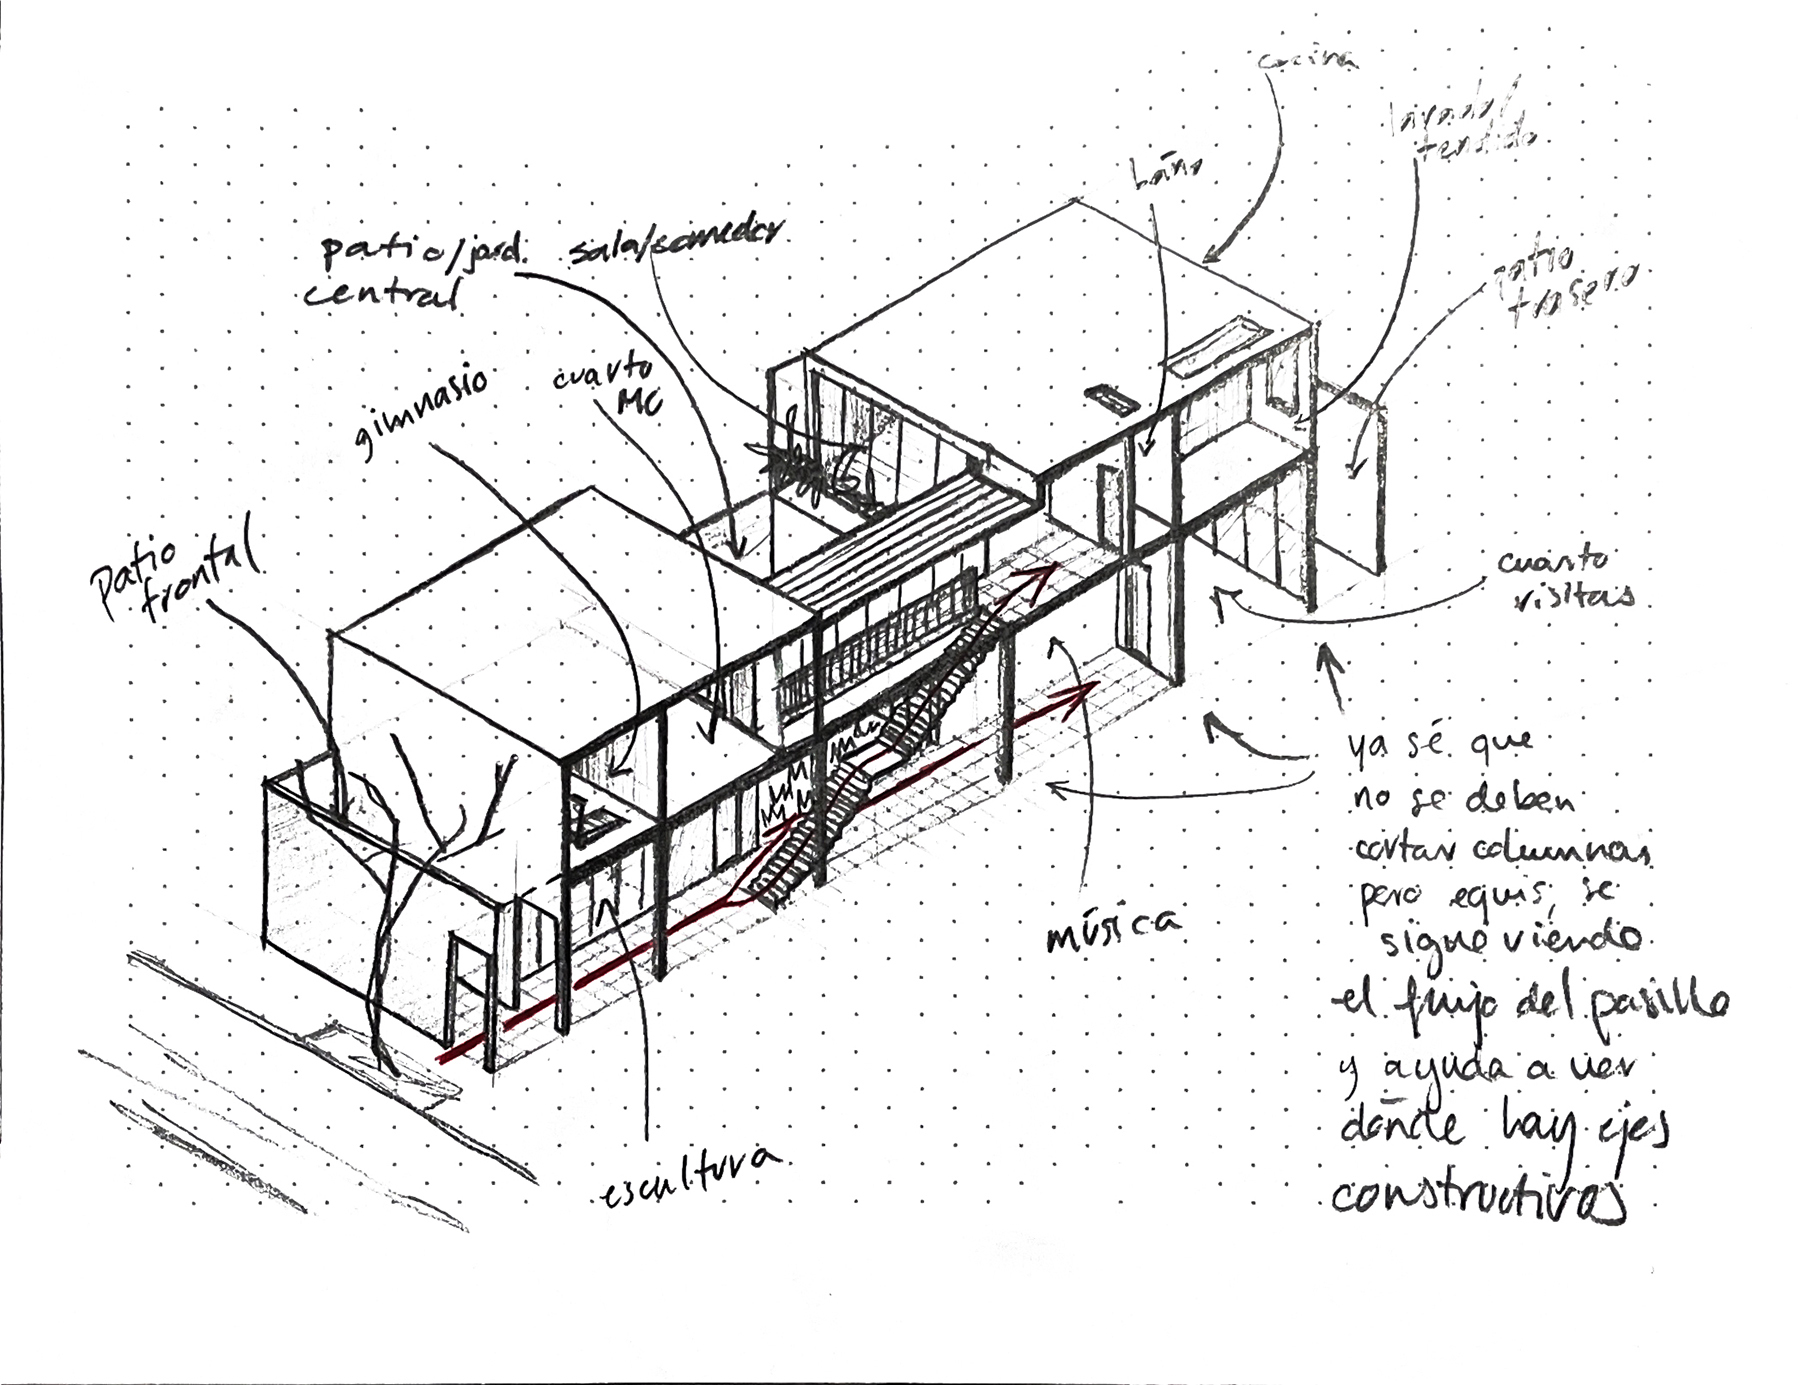 cocina
lavado/
tendido
baño
patio/jard.
central
sala/comedor
patio
trasero
gimnasio
cuarto
MC
Patio
frontal
cuarto
visitas
ya sé que
no se deben
cortar columnas
pero equis, se
sigue viendo
el flujo del pasillo
y ayuda a ver
dónde hay ejes
constructivos
música
escultura